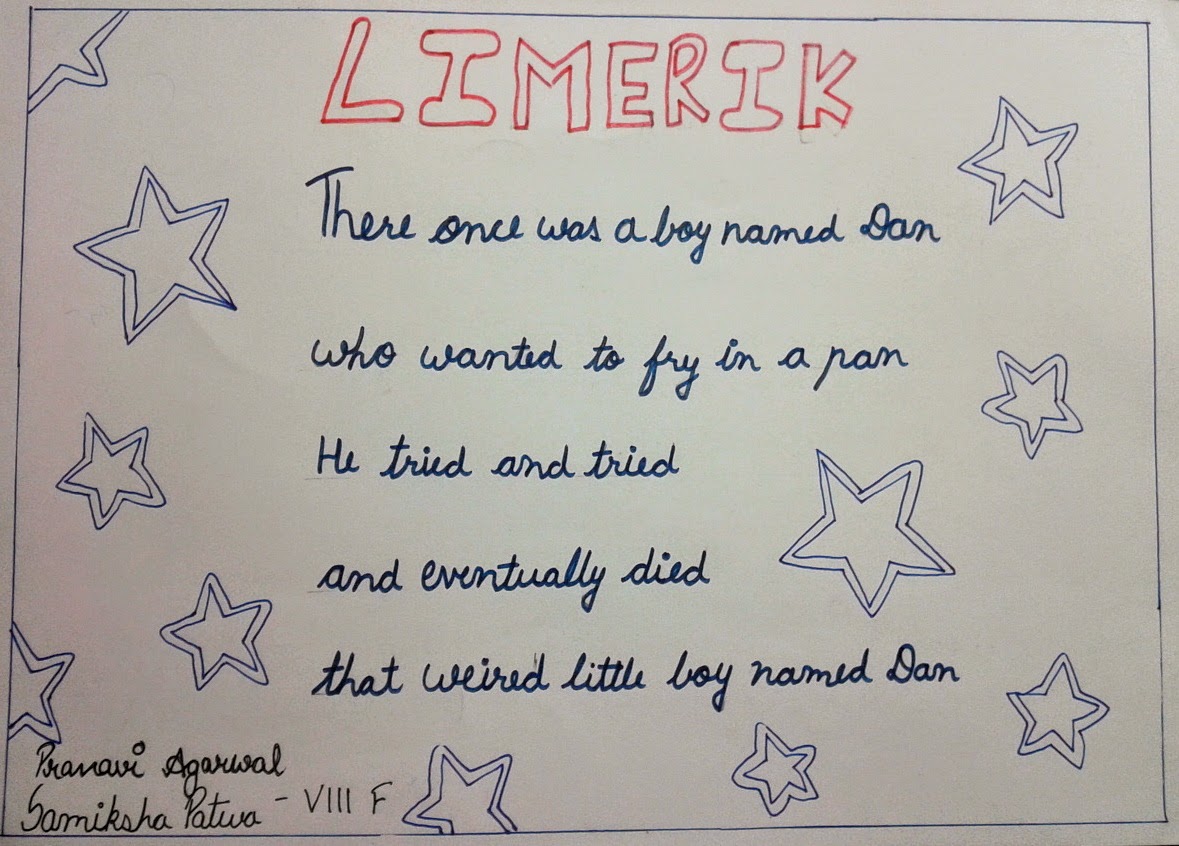 LIMERIK
There once was a boy named Dan
who wanted to fry in a pan
He tried and tried
and eventually died
that weired little boy named Dan
Pranavi Agarwal
Samiksha Patwa - VIII F